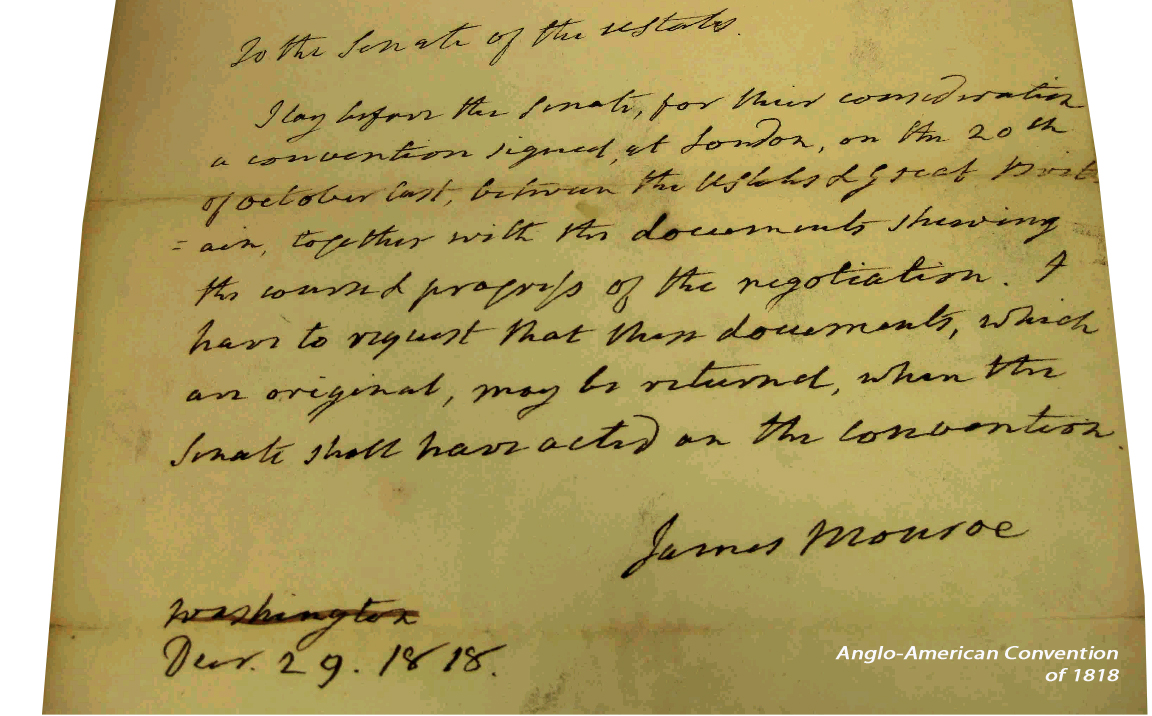 To the Senate of the UStates.
I lay before the Senate, for their consideration
a convention signed, at London, on the 20th
of october last, between the UStates & Great Brit
=ain, together with the documents shewing
the course & progress of the negotiation. I
have to request that these documents, which
are original, may be returned, when the
Senate shall have acted on the convention.
James Monroe
Washington
Decr. 29. 1818.
Anglo-American Convention
of 1818